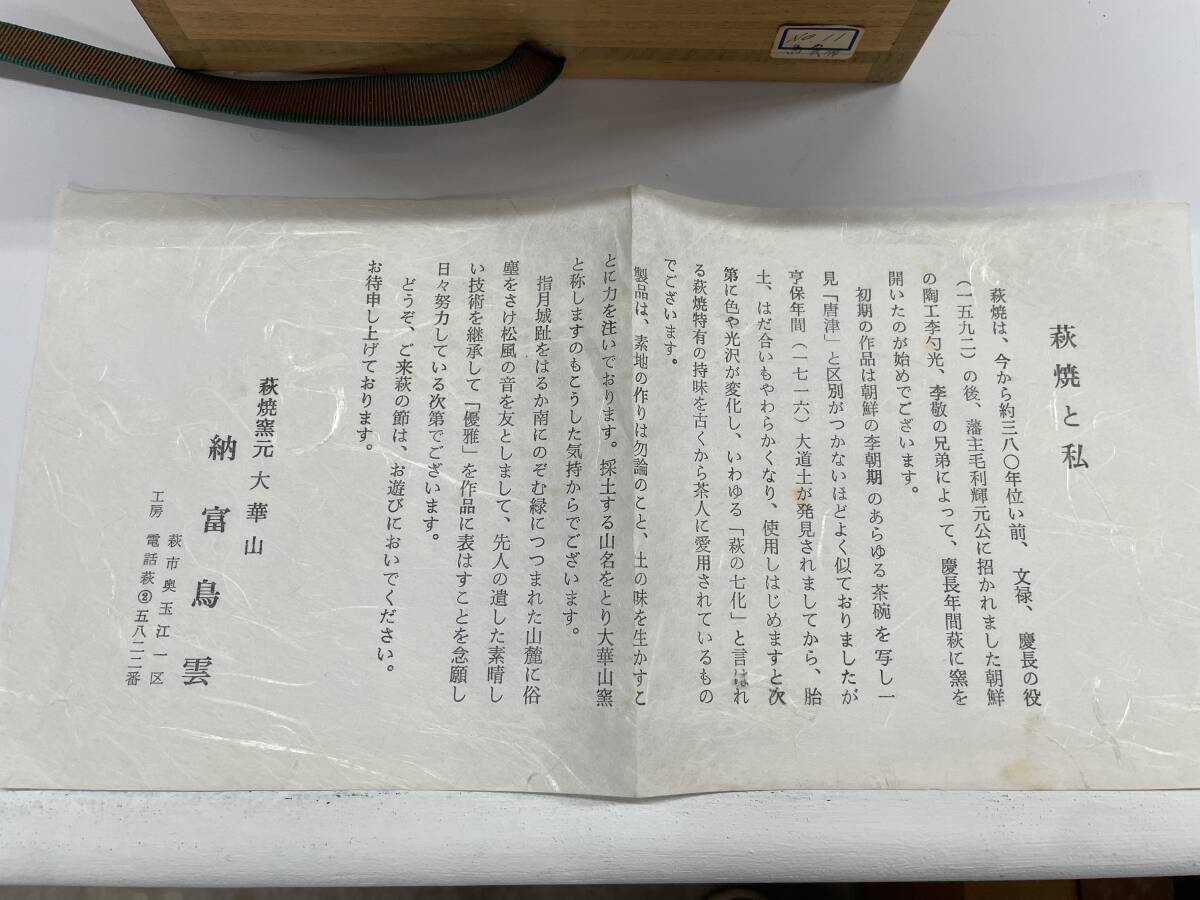 No 11
萩焼と私
萩焼は、今から約三八〇年位い前、文禄、慶長の役
(一五九二)の後、藩主毛利輝元公に招かれました朝鮮
の陶工李勺光、李敬の兄弟によって、慶長年間萩に窯を
開いたのが始めでございます。
初期の作品は朝鮮の李朝期のあらゆる茶碗を写し一
見「唐津」と区別がつかないほどよく似ておりましたが
亨保年間(一七一六)大道土が発見されましてから、胎
土、はだ合いもやわらかくなり、使用しはじめますと次
第に色や光沢が変化し、いわゆる「萩の七化」と言はれ
る萩焼特有の持味を古くから茶人に愛用されているもの
でございます。
製品は、素地の作りは勿論のこと、土の味を生かすこ
とに力を注いでおります。採土する山名をとり大華山窯
と称しますのもこうした気持からでございます。
指月城趾をはるか南にのぞむ緑につつまれた山麓に俗
塵をさけ松風の音を友としまして、先人の遺した素晴し
い技術を継承して「優雅」を作品に表はすことを念願し
日々努力している次第でございます。
どうぞ、ご来萩の節は、お遊びにおいでください。
お待申し上げております。
萩焼窯元 大華山
納富鳥雲
工房 萩市奥玉江一区
電話萩②五八二二番